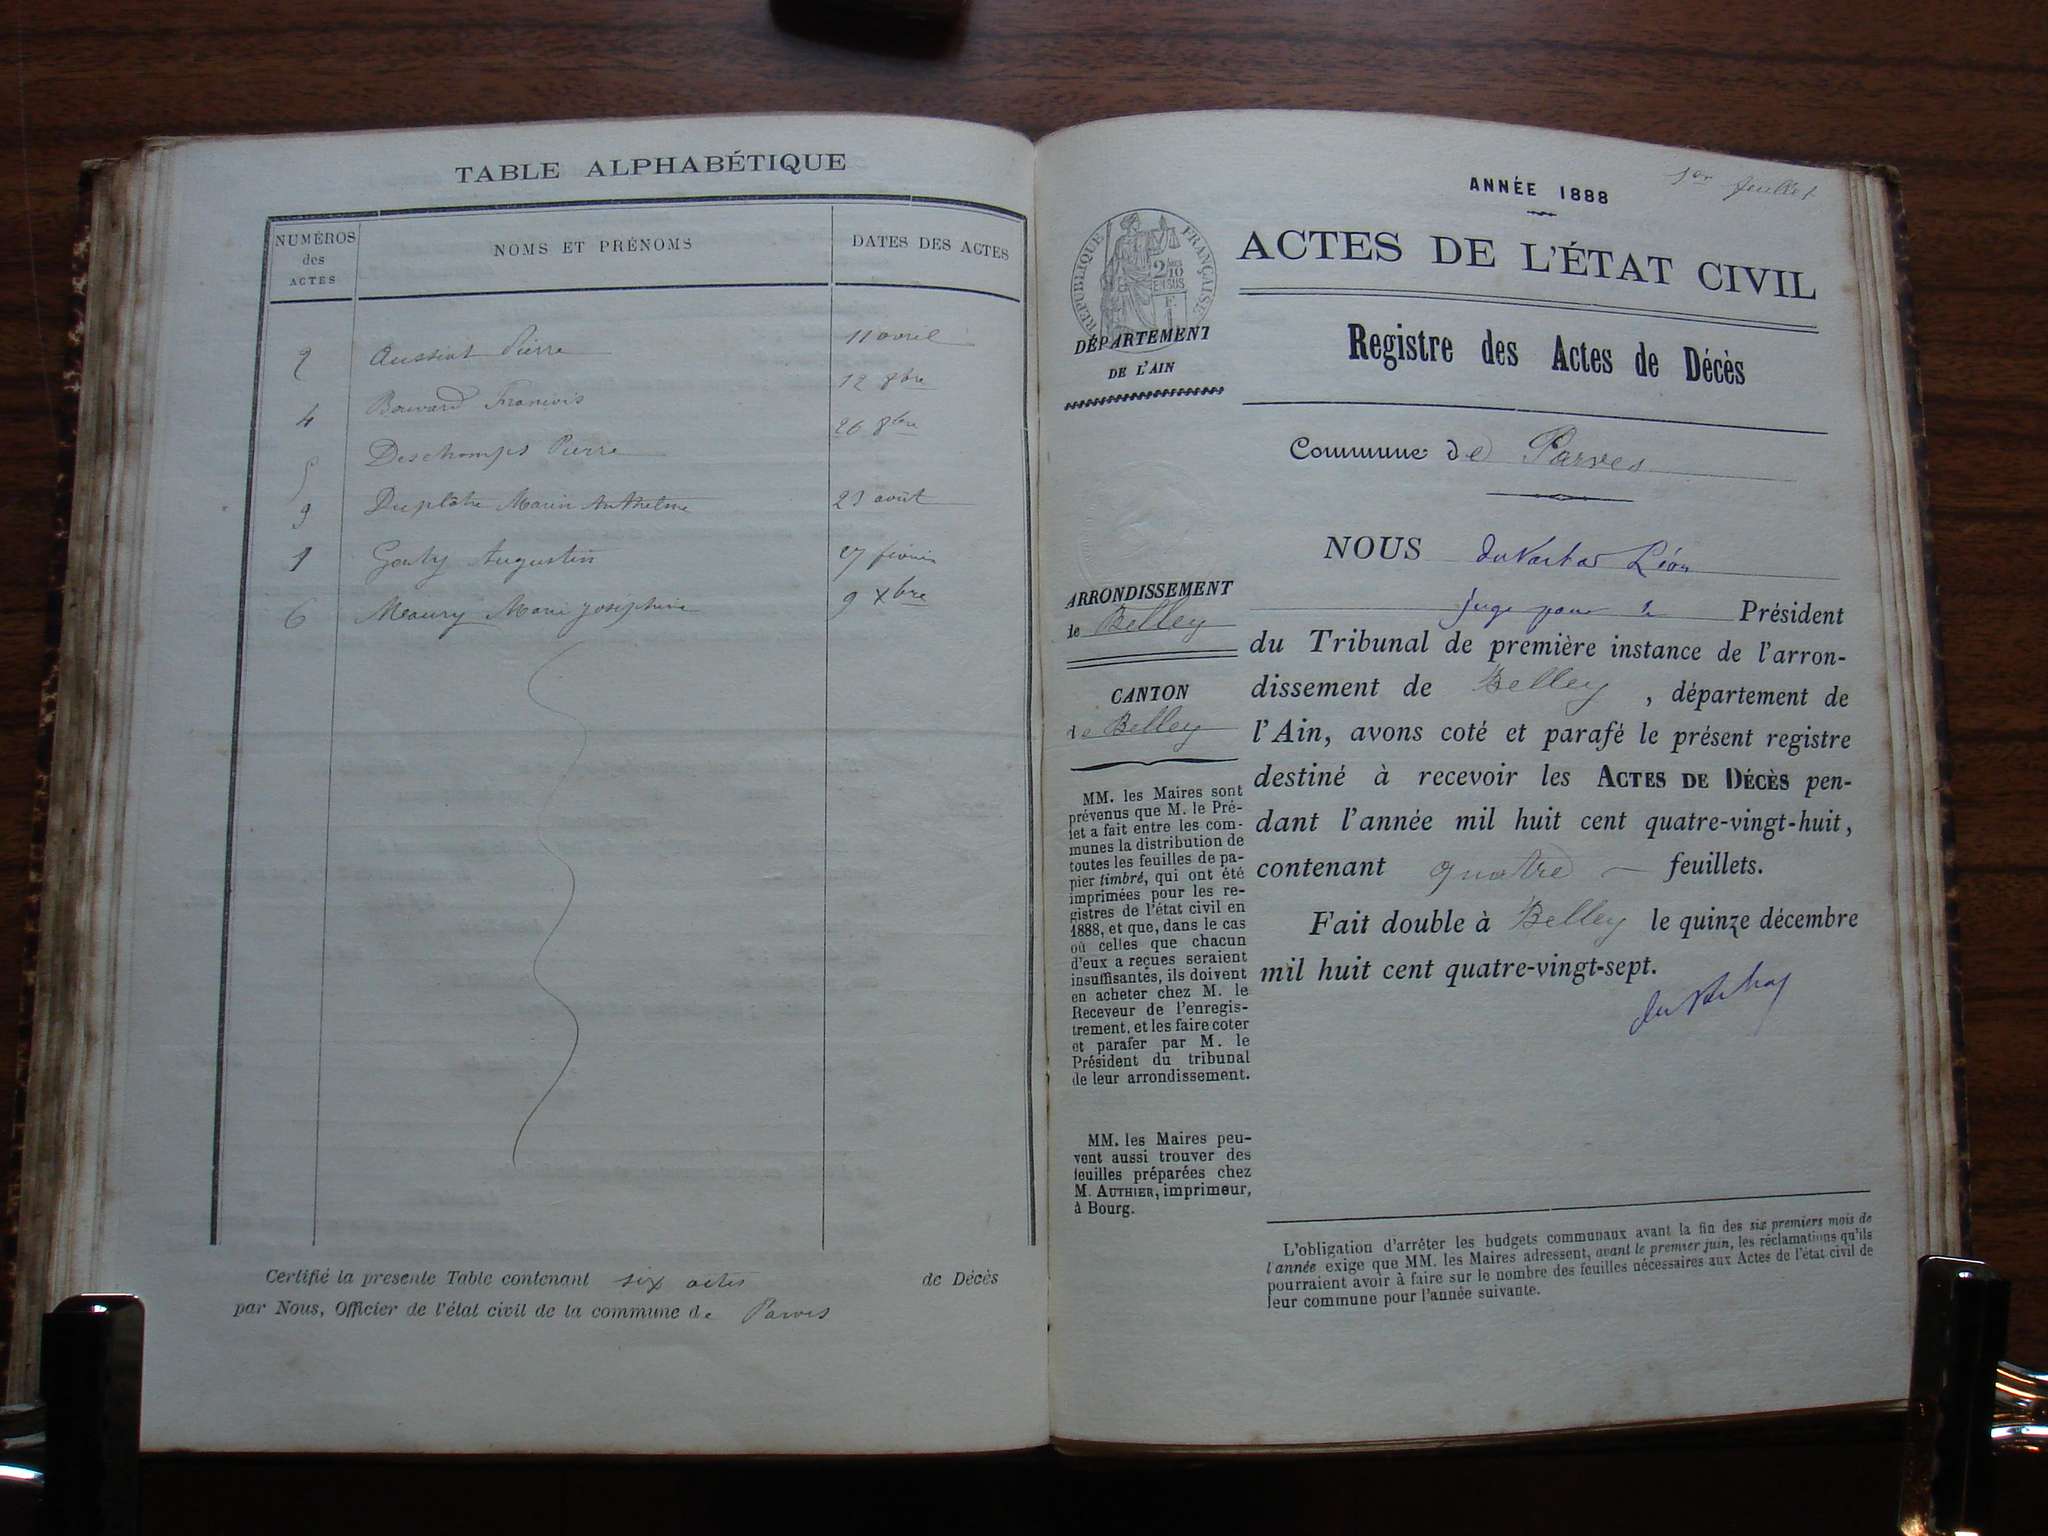 TABLE ALPHABÉTIQUE
NUMÉROS
des
ACTES
NOMS ET PRÉNOMS
DATES DES ACTES
2 Aussint Pierre 11 avril
4 Bouvard François 12 8bre
5 Deschamps Pierre 26 8bre
3 Duplâtre Marin Anthelme 23 août
1 Augustin 27 février
6 Meaury Marie Joséphine 9 Xbre
Certifié la presente Table contenant six actes de Décès
par Nous, Officier de l'état civil de la commune de Parves
1er feuillet
ANNÉE 1888
ACTES DE L'ÉTAT CIVIL
RÉPUBLIQUE FRANÇAISE
2/10 EN SUS
DÉPARTEMENT
DE L'AIN
Registre des Actes de Décès
Commune de Parves
ARRONDISSEMENT
de Belley
CANTON
de Belley
MM. les Maires sont
prévenus que M. le Pré-
fet a fait entre les com-
munes la distribution de
toutes les feuilles de pa-
pier timbré, qui ont été
imprimées pour les re-
gistres de l'état civil en
1888, et que, dans le cas
où celles que chacun
d'eux a reçues seraient
insuffisantes, ils doivent
en acheter chez M. le
Receveur de l'enregis-
trement, et les faire coter
et parafer par M. le
Président du tribunal
de leur arrondissement.
MM. les Maires peu-
vent aussi trouver des
feuilles préparées chez
M. AUTHIER, imprimeur,
à Bourg.
NOUS Léon
juge pour le Président
du Tribunal de première instance de l'arron-
dissement de Belley, département de
l'Ain, avons coté et parafé le présent registre
destiné à recevoir les ACTES DE DÉCÈS pen-
dant l'année mil huit cent quatre-vingt-huit,
contenant quatre feuillets.
Fait double à Belley le quinze décembre
mil huit cent quatre-vingt-sept.
L'obligation d'arrêter les budgets communaux avant la fin des six premiers mois de
l'année exige que MM. les Maires adressent, avant le premier juin, les réclamations qu'ils
pourraient avoir à faire sur le nombre des feuilles nécessaires aux Actes de l'état civil de
leur commune pour l'année suivante.